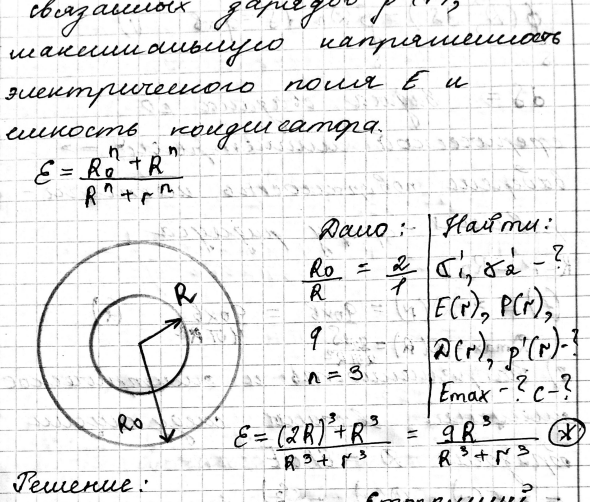 связанных зарядов ρ'(r),
максимальную напряженность
электрического поля E и
емкость конденсатора.
ε = (R₀ⁿ + Rⁿ) / (Rⁿ + rⁿ)
Дано: Найти:
R₀/R = 2/1 σ'₁, σ'₂ - ?
q E(r), P(r),
n = 3 D(r), ρ'(r) - ?
Emax - ? C - ?
R
R₀
ε = ((2R)³ + R³) / (R³ + r³) = 9R³ / (R³ + r³) (*)
Решение: